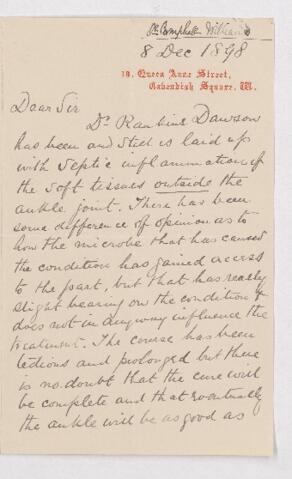 Dr Campbell Williams
8 Dec 1898
18, Queen Anne Street,
Cavendish Square, W.
Dear Sir
Dr Rankine Dawson
has been and still is laid up
with septic inflammation of
the soft tissues outside the
ankle joint. There has been
some difference of opinion as to
how the microbe that has caused
the condition has gained access
to the part, but that has really
slight bearing on the condition &
does not in anyway influence the
treatment. The course has been
tedious and prolonged but there
is no doubt that the cure will
be complete and that eventually
the ankle will be as good as